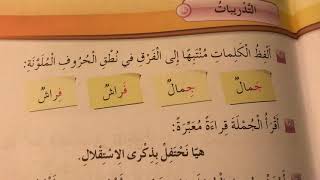 التَّدْرِيباتُ
أَلْفِظُ الْكَلِماتِ مُنْتَبِهًا إِلى الْفَرْقِ في نُطْقِ الْحُروفِ الْمُلَوَّنَةِ:
جَمالٌ جِمالٌ فَراشٌ فِراشٌ
أَقْرَأُ الْجُمْلَةَ قِراءَةً مُعَبِّرَةً:
هَيّا نَحْتَفِلْ بِذِكْرى الِاسْتِقْلالِ.